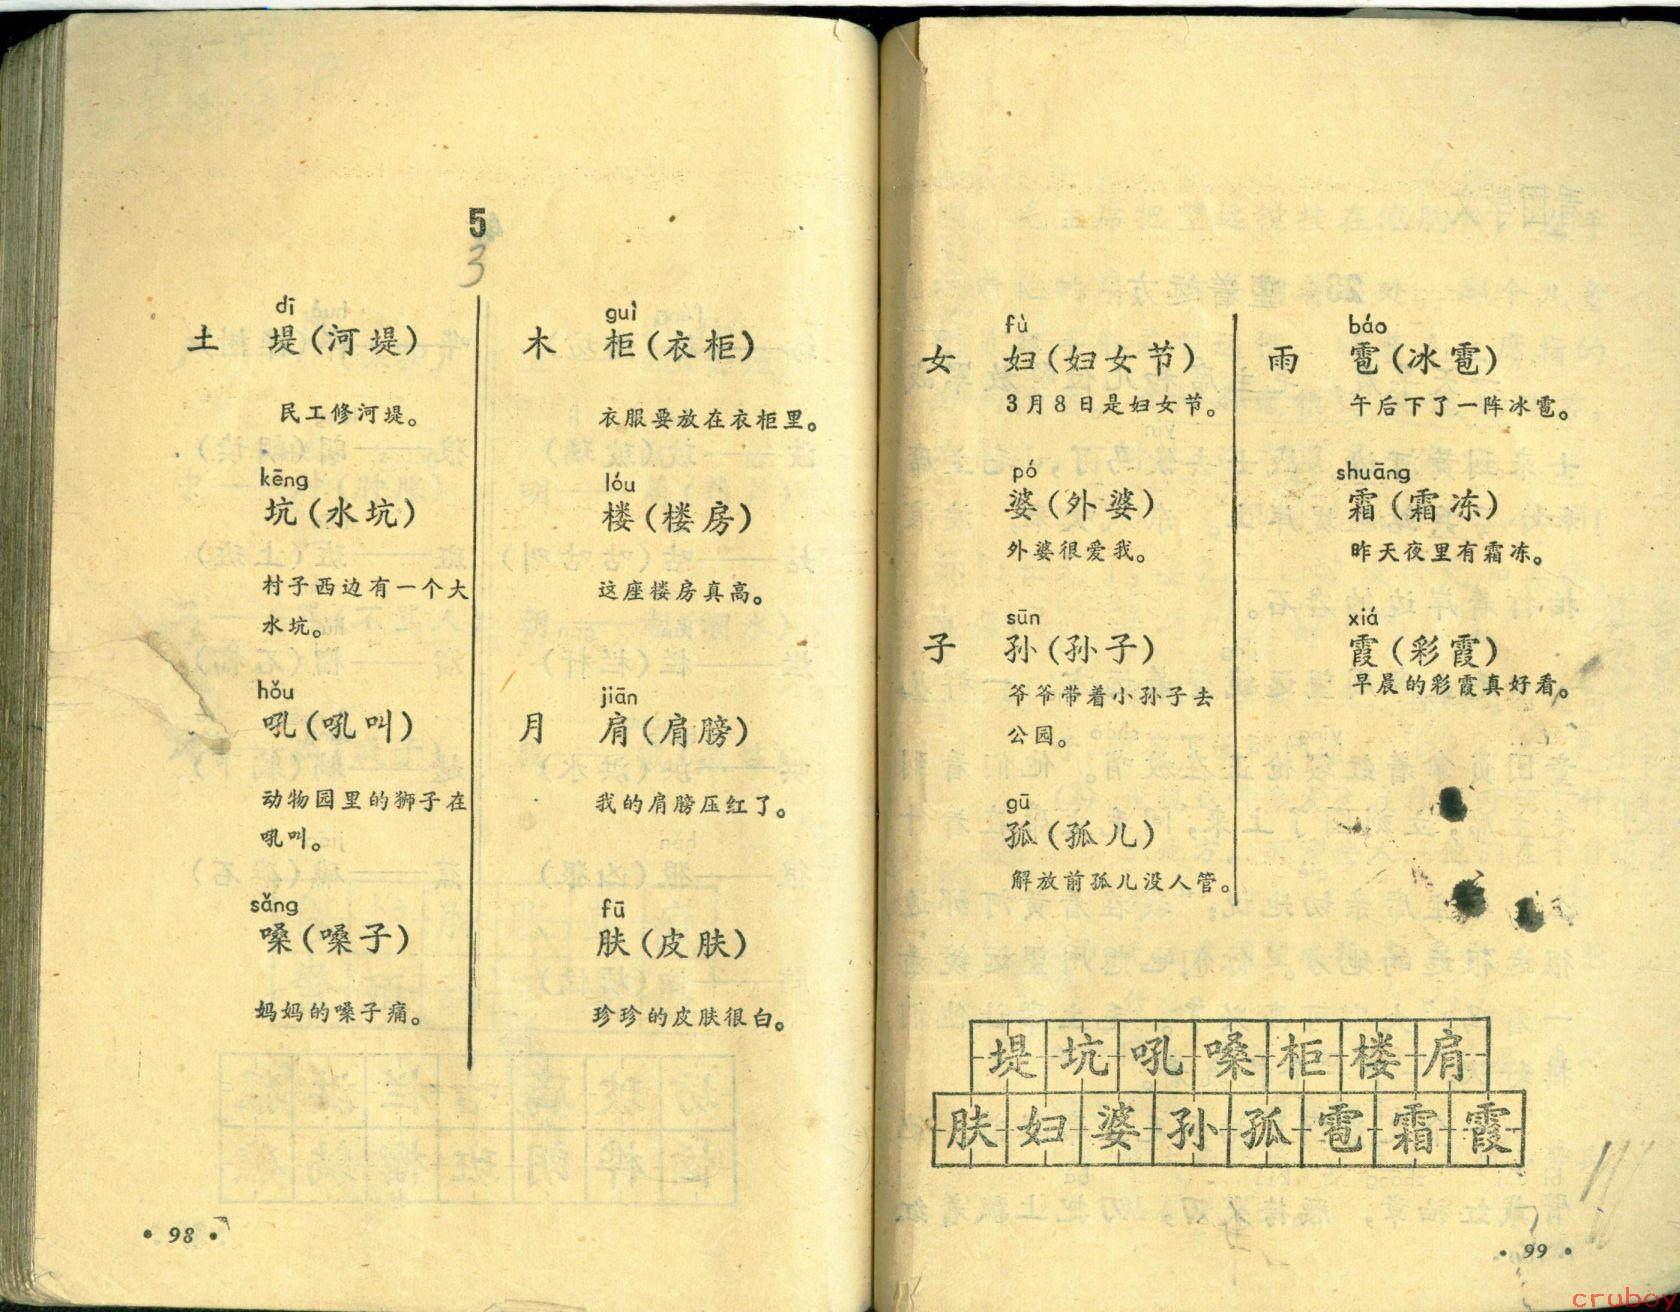 5
3
dī
土 堤(河堤)
民工修河堤。
kēng
坑(水坑)
村子西边有一个大
水坑。
hǒu
吼(吼叫)
动物园里的狮子在
吼叫。
sǎng
嗓(嗓子)
妈妈的嗓子痛。
guì
木 柜(衣柜)
衣服要放在衣柜里。
lóu
楼(楼房)
这座楼房真高。
jiān
月 肩(肩膀)
我的肩膀压红了。
fū
肤(皮肤)
珍珍的皮肤很白。
·98·
fù
女 妇(妇女节)
3月8日是妇女节。
pó
婆(外婆)
外婆很爱我。
sūn
子 孙(孙子)
爷爷带着小孙子去
公园。
gū
孤(孤儿)
解放前孤儿没人管。
báo
雨 雹(冰雹)
午后下了一阵冰雹。
shuāng
霜(霜冻)
昨天夜里有霜冻。
xiá
霞(彩霞)
早晨的彩霞真好看。
堤坑吼嗓柜楼肩
肤妇婆孙孤雹霜霞
·99·
cruboy